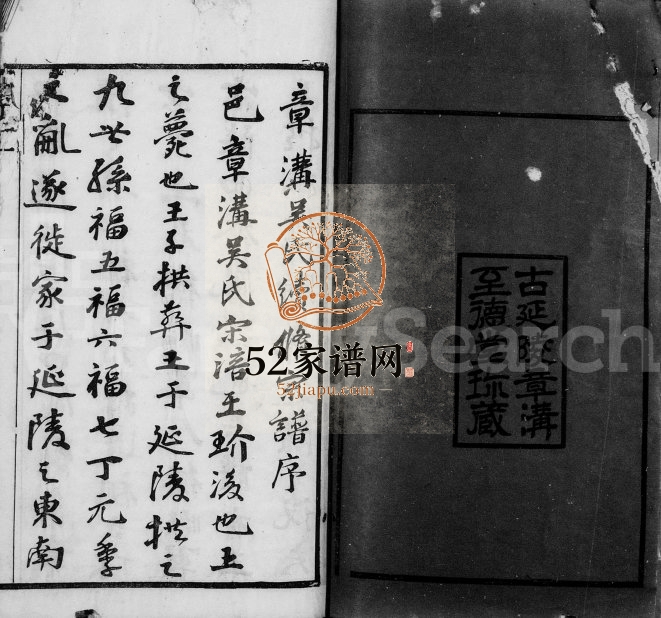 古延陵章溝
至德堂珎藏
章溝吴氏續修譜序
邑章溝吴氏宋涪王玠後也王
之薨也王子拱葬王于延陵拱之
九世孫福五福六福七丁元季
之亂遂徙家于延陵之東南
52家谱网
52jiapu.com
Search